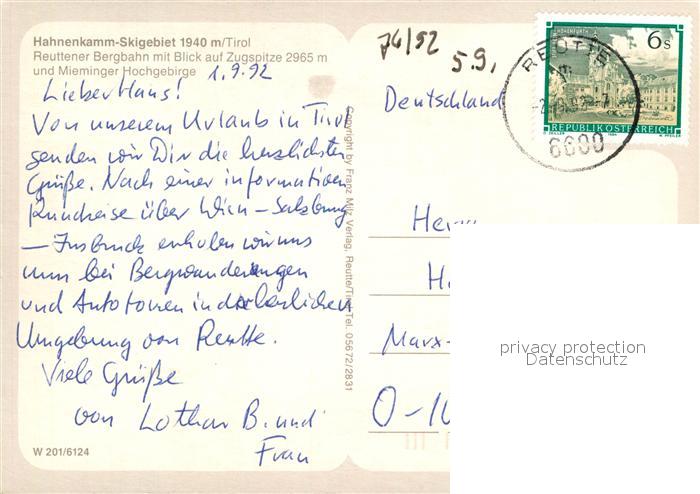 Hahnenkamm-Skigebiet 1940 m/Tirol
Reuttener Bergbahn mit Blick auf Zugspitze 2965 m
und Mieminger Hochgebirge
1.9.92
Lieber Hans!
Von unserem Urlaub in Tirol
senden wir Dir die herzlichsten
Grüße. Nach einer informativen
Rundreise über Wien – Salzburg
– Insbruck erholen wir uns
nun bei Bergwanderungen
und Autotouren in der herlichen
Umgebung von Reutte.
Viele Grüße
von Lothar B. und
Frau
W 201/6124
Copyright by Franz Milz Verlag, Reutte/Tirol Tel. 05672/2831
74/92
5.9.
Deutschland
6s
REPUBLIK ÖSTERREICH
REUTTE
6600
Herrn
H
Marx-
O-10
privacy protection
Datenschutz